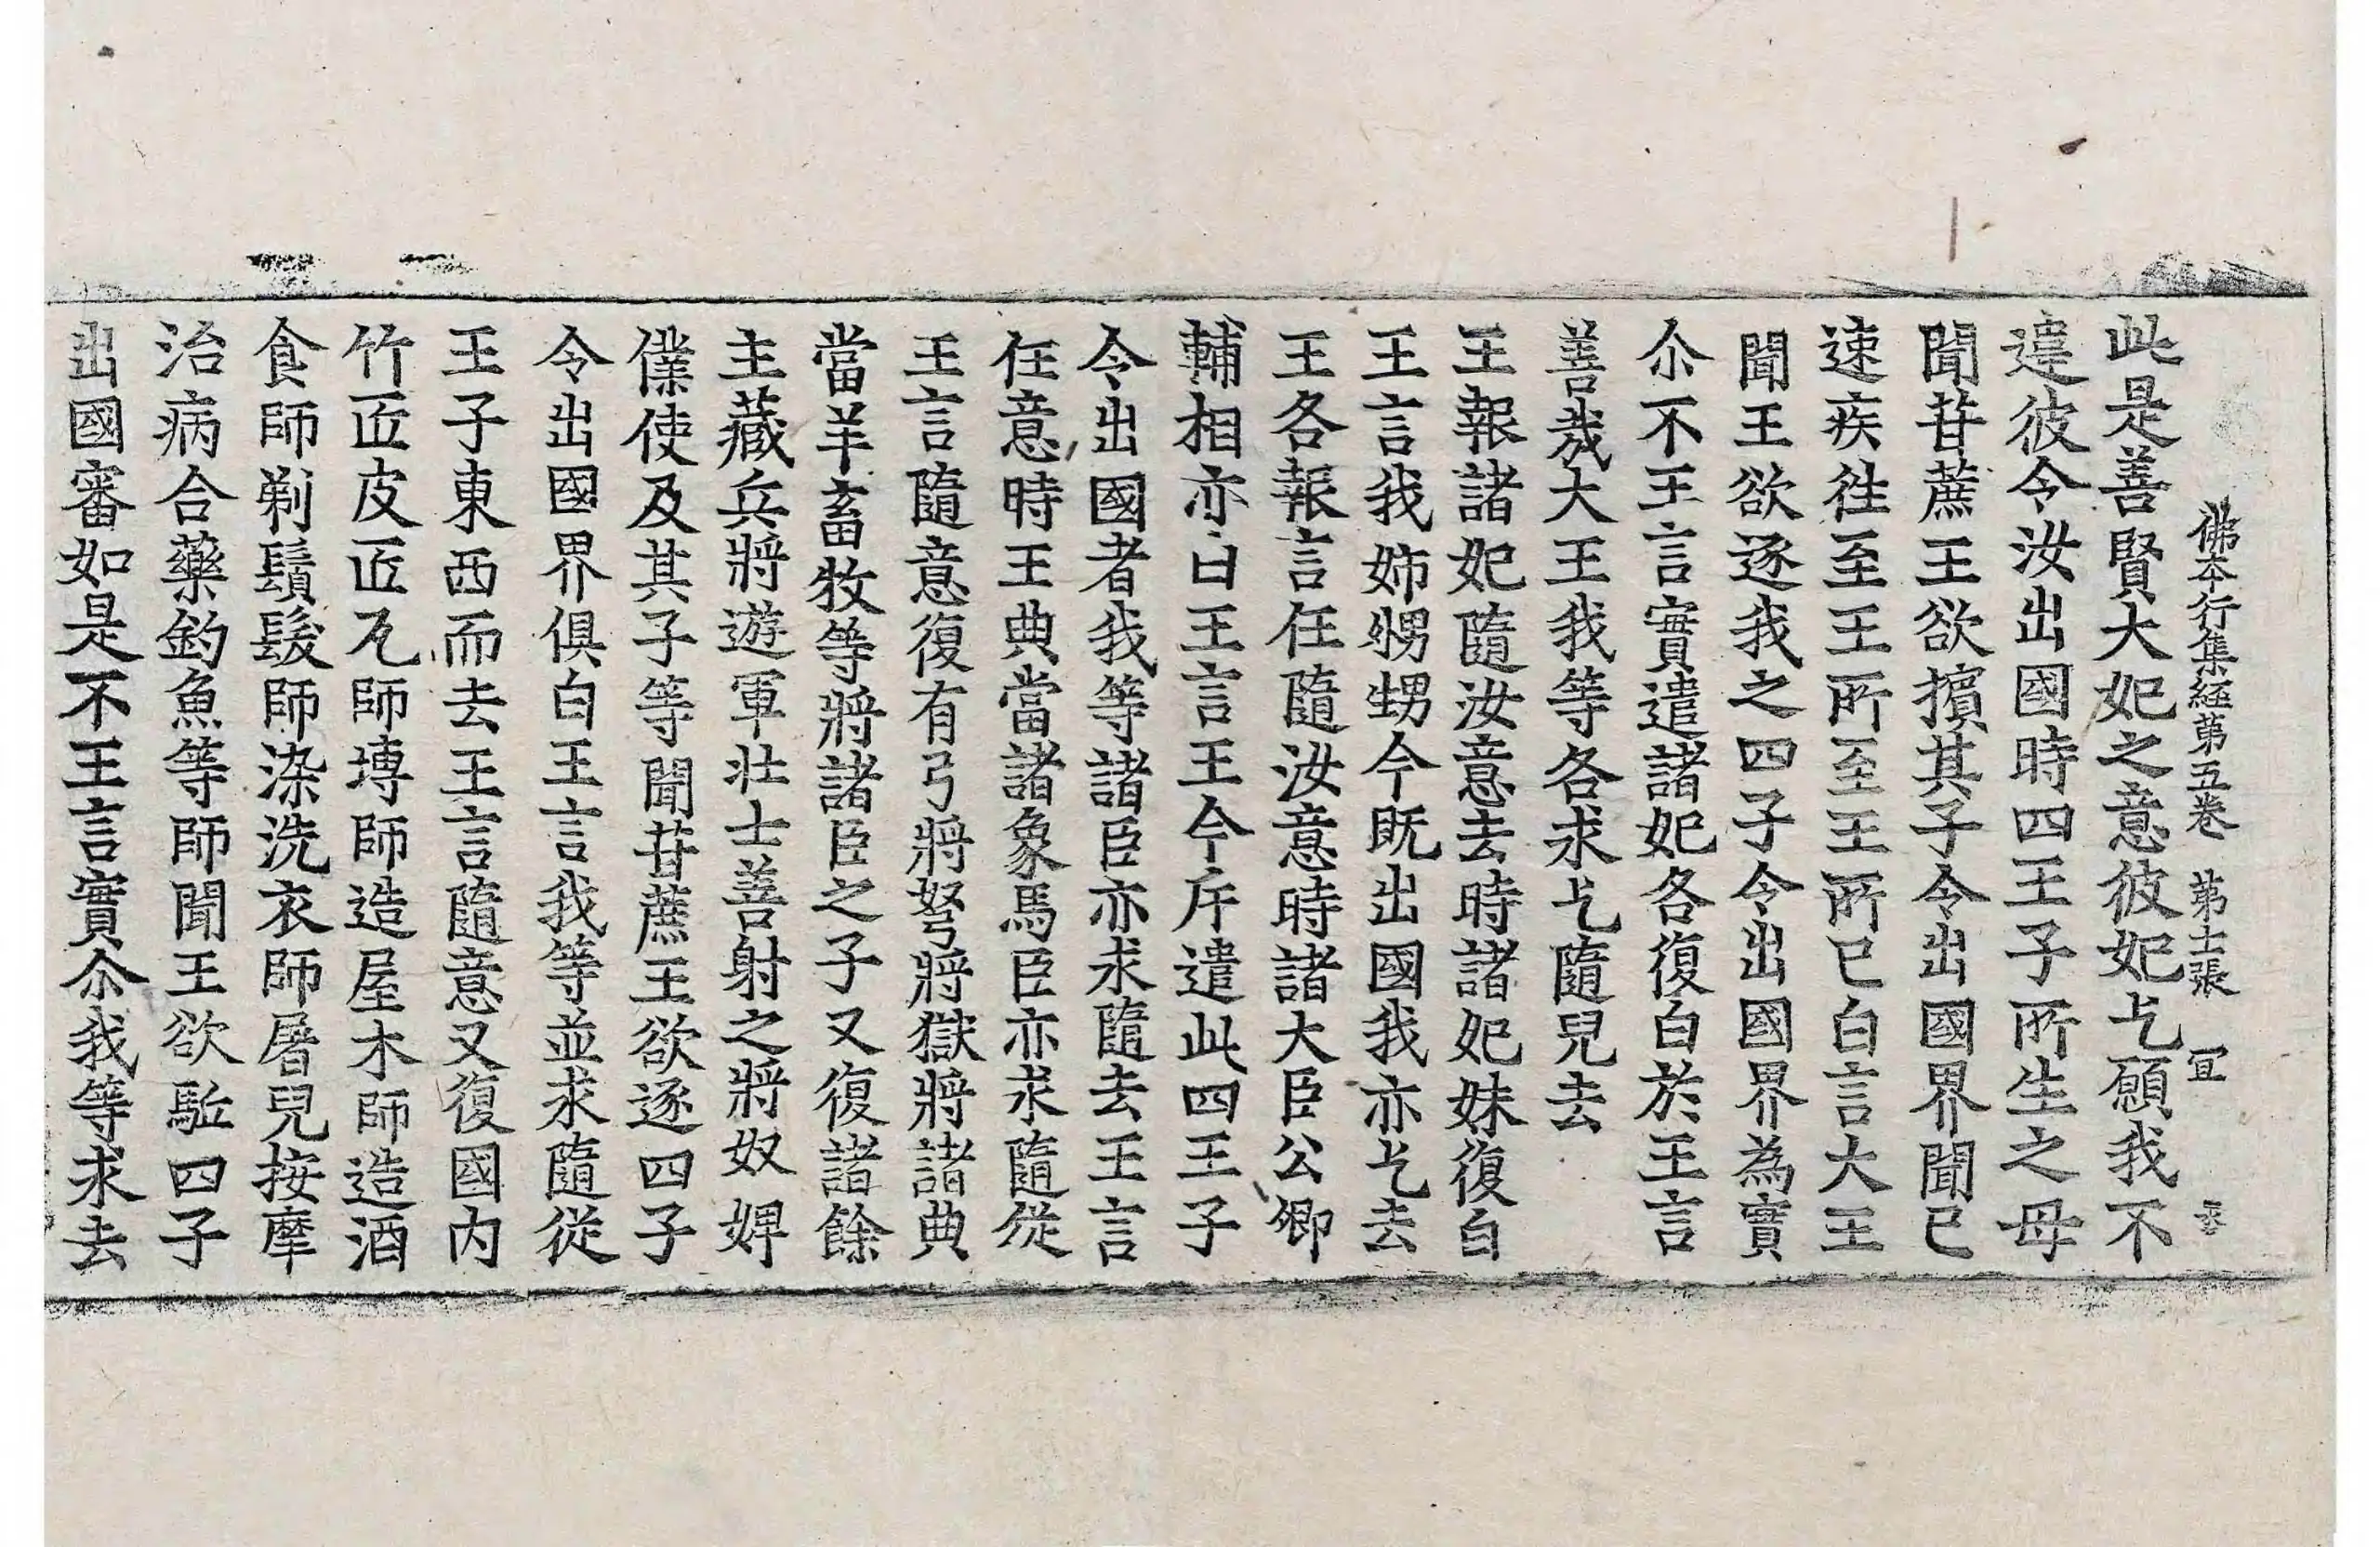 佛本行集經第五卷 第十二張 宜
此是善賢大妃之意彼妃乞願我不
違彼令汝出國時四王子所生之母
聞甘蔗王欲擯其子令出國界聞已
速疾往至王所至王所已白言大王
聞王欲逐我之四子令出國界為實
尒不王言實遣諸妃各復白於王言
善哉大王我等各求乞隨兒去
王報諸妃隨汝意去時諸妃妹復白
王言我姊甥甥今既出國我亦乞去
王各報言任隨汝意時諸大臣公卿
輔相亦白王言王今斥遣此四王子
令出國者我等諸臣亦求隨去王言
任意時王典當諸象馬臣亦求隨從
王言隨意復有弓將弩將獄將諸典
當羊畜牧等將諸臣之子又復諸餘
主藏兵將遊軍壯士善射之將奴婢
僕使及其子等聞甘蔗王欲逐四子
令出國界俱白王言我等並求隨從
王子東西而去王言隨意又復國內
竹匠皮匠瓦師塼師造屋木師造酒
食師剃鬚髮師染洗衣師屠兒按摩
治病合藥釣魚等師聞王欲駈四子
出國審如是不王言實尒我等求去